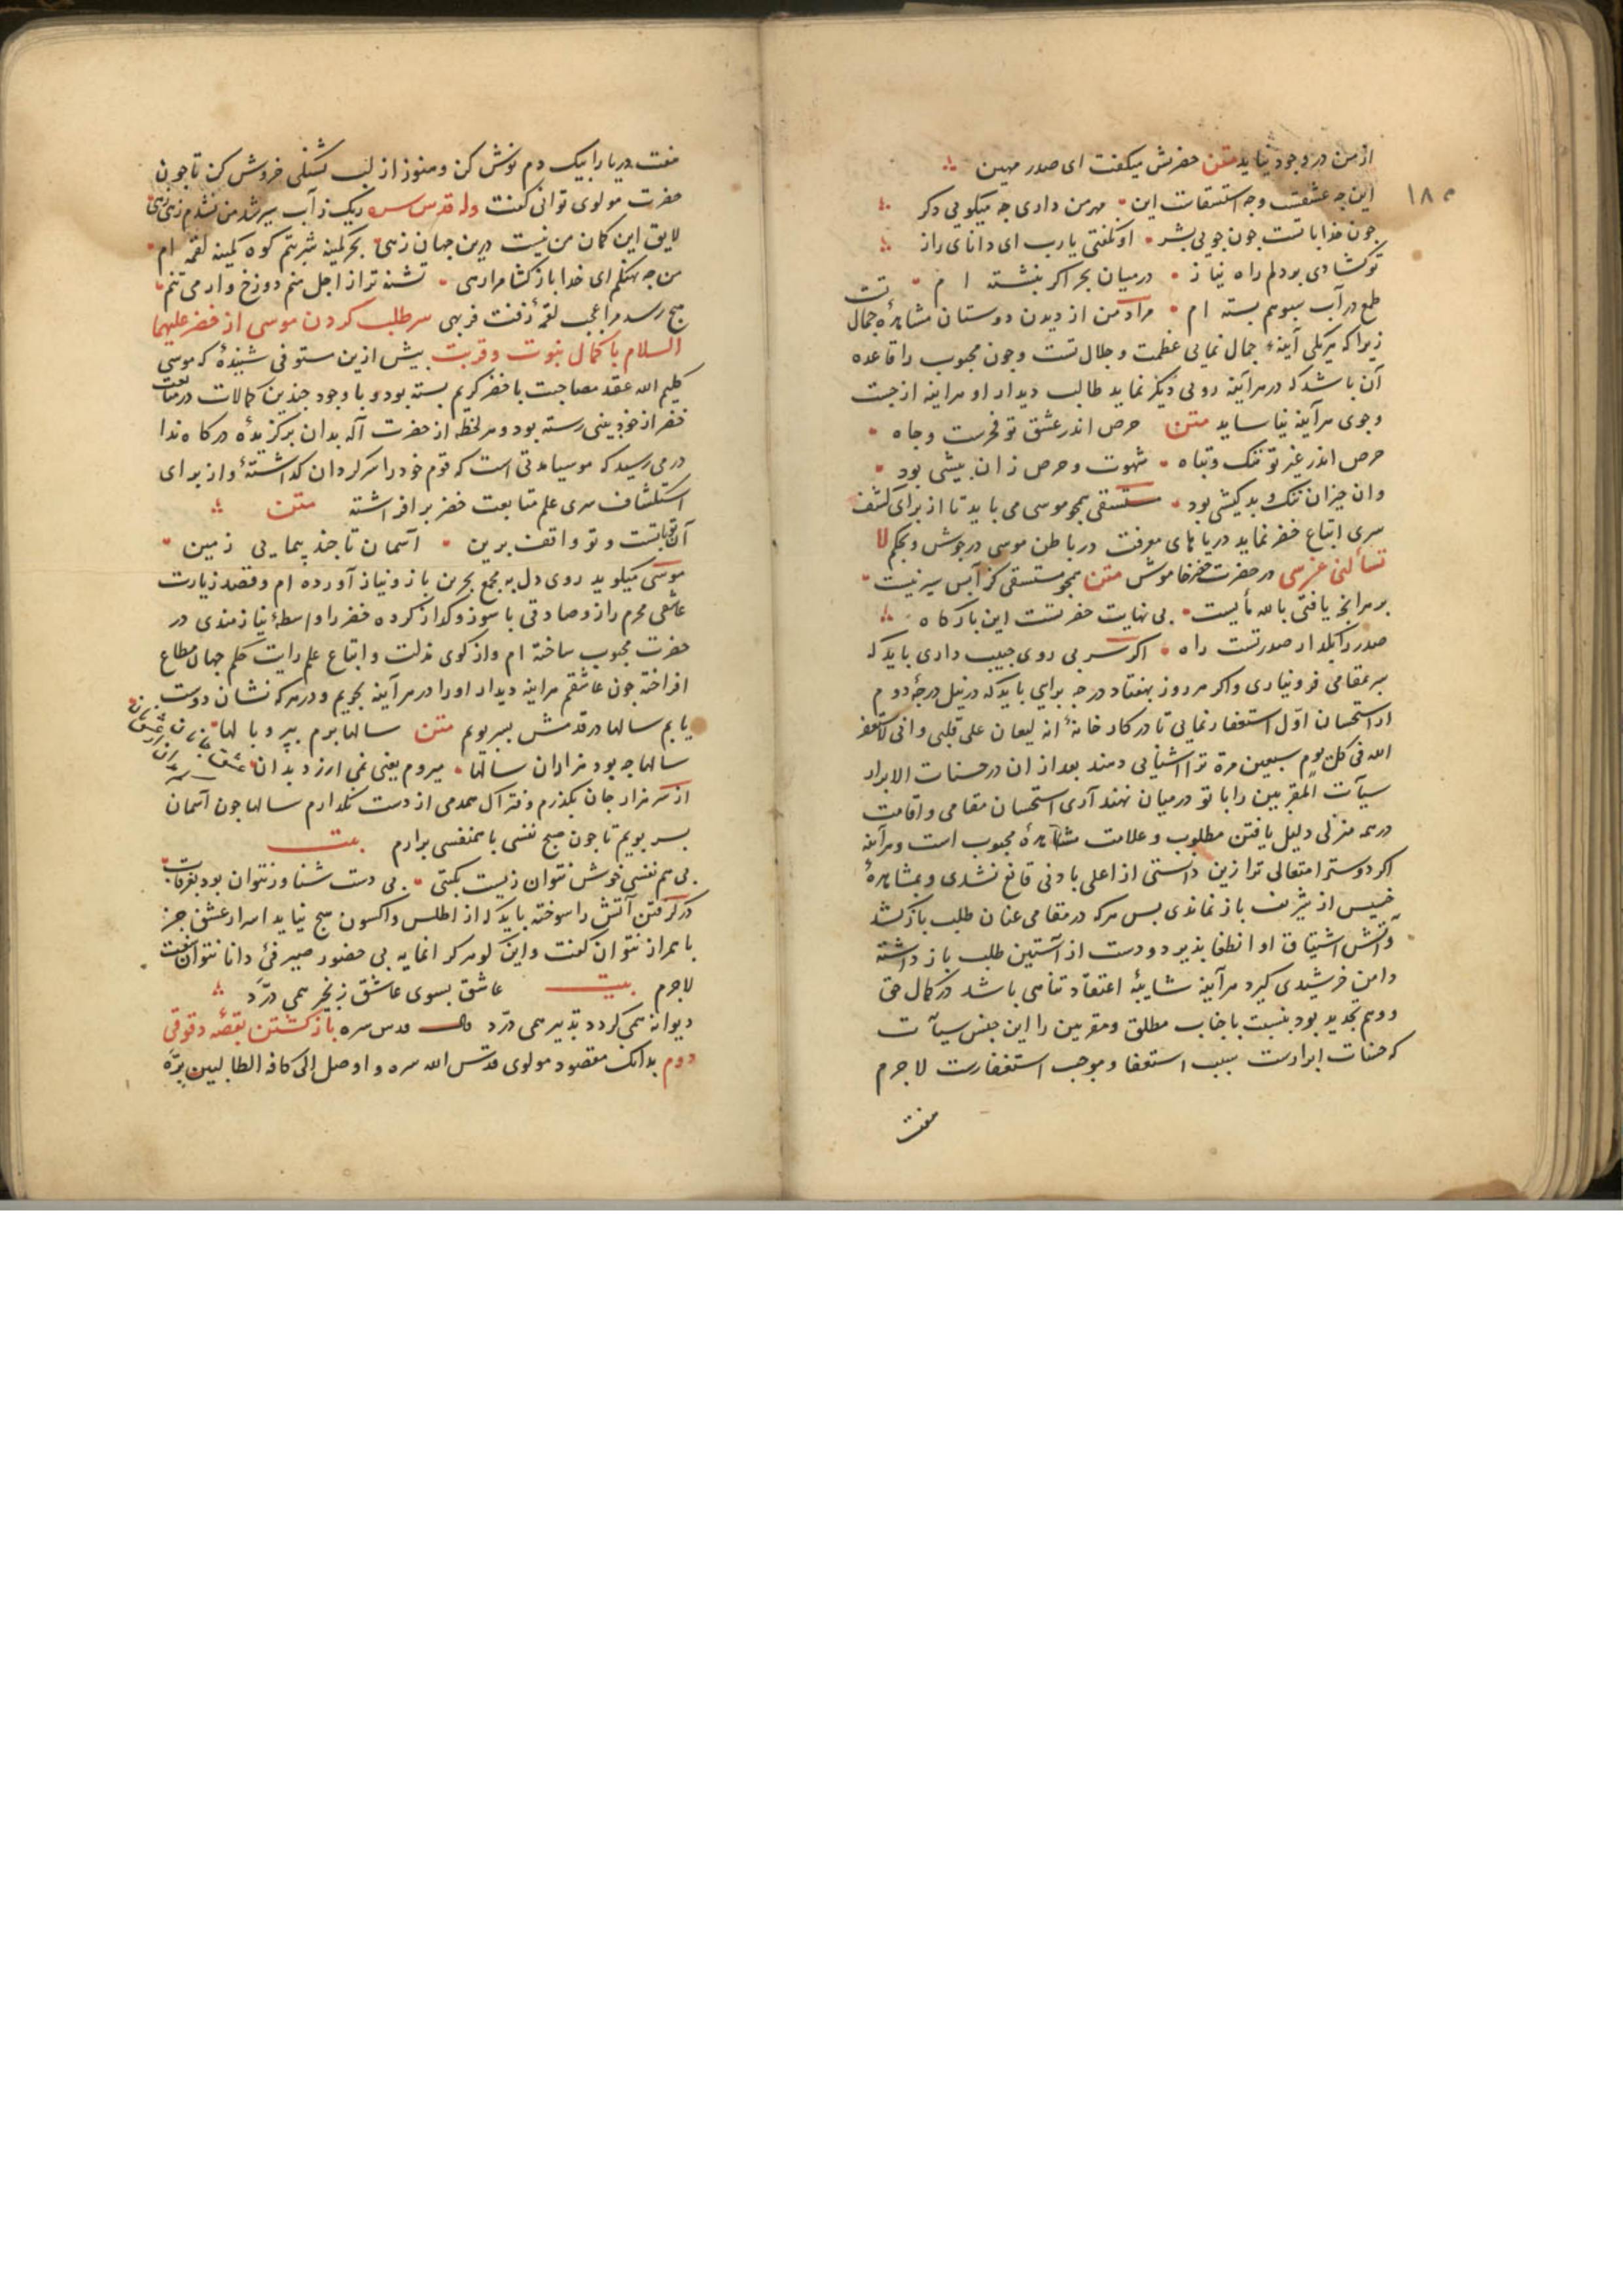 ۱۸۵
ازمن در وجود نیاید متن حضرتش میکفت ای صدر مهین
این چه عشقست وچه استسقاست این مهر من داری چه میکویی دکر
چون خدابا تست چون جویی بشر او بکفتی یارب ای دانای راز
توکشادی بودلم راه نیاز درمیان بحر اکر بنشسته ام
طمع در آب سبوهم بسته ام مراد من از دیدن دوستان مشاهدۀ جمال تست
زیراکه هریکی آینۀ جمال نمایی عظمت وجلال تست وچون محبوب را قاعده
آن باشد که در هر آینه رویی دیکر نماید طالب دیدار او هراینه از جست
وجوی هر آینه نیاساید متن حرص اندر عشق تو فخرست وجاه
حرص اندر غیر تو ننک وتباه شهوت وحرص نران بیشی بود
وان حیزان ننک وبدکیشی بود مستسقی همچو موسی می باید تا از برای کشف
سری اتباع خضر نماید دریاهای معرفت در باطن موسی در جوش وبحکم لا
تسألنی عن شی در حضرت خضر خاموش متن همچو مستسقی کز آبش سیر نیست
برهرانچ یافتی بالله مأیست بی نهایت حضرتست این بارکاه
صدر را بکذار صدر تست راه اکر سر بی روی حبیب داری باید که
بهر مقامی فرو نیاری واکر هر روز بهفتاد درجه برایی باید که در نیل درجۀ دوم
از استحسان اوّل استغفار نمایی تا در کار خانۀ انه لیغان علی قلبی وانی لاستغفر
الله فی کل یوم سبعین مرة ترا آشنایی دهند بعد از ان در حسنات الابرار
سیآت المقربین رابا تو درمیان نهند آری استحسان مقامی واقامت
در همه منزلی دلیل یافتن مطلوب وعلامت مشاهدۀ محبوب است وهرآینه
اکر دوستر امتعالی تر ازین دانستی از اعلی بادنی قانع نشدی وبمشاهدۀ
خسیس از شریف باز نماندی پس هرکه در مقامی عنان طلب بازکشد
وآتش اشتیاق او انطفا پذیرد ودست از آستین طلب باز داشته
دامن خرسندی کیرد هرآینه شایبۀ اعتقاد تناهی باشد در کمال حق
ووهم تحدید بود بنسبت باجناب مطلق ومقربین را این جنس سیآت
که حسنات ابرارست سبب استعفا وموجب استغفارست لاجرم
هفت
هفت دریا را بیک دم نوش کن وهنوز از لب تشنکی خروش کن تا چون
حضرت مولوی توانی کفت وله قدس سره ریک ز آب سیر شد من نشدم زهی زهی
لایق این کمان من نیست درین جهان زهی بحر کمینه شربتم کوه کمینه لقمه ام
من چه نهنکم ای خدا بازکشا مرا رهی تشنه تر از اجل منم دوزخ وار می تنم
هیچ رسد مرا عجب لقمۀ زفت فربهی سر طلب کردن موسی از خضر علیهما
السلام با کمال نبوت وقربت بیش ازین مستوفی شنیدۀ که موسی
کلیم الله عقد مصاحبت با خضر کریم بسته بود وباوجود چندین کمالات در متابعت
خضر از خودبینی رسته بود وهر لحظه از حضرت آله بدان برکزیدۀ درکاه ندا
در می رسید که موسیا مدتی است که قوم خود را سرکردان کذاشتۀ واز برای
استکشاف سری علم متابعت خضر برافراشته متن
آن تو باتست وتو واقف برین آسمان تا چند پیمایی زمین
موسی میکوید روی دل به مجمع بحرین باز ونیاز آورده ام وقصد زیارت
عاشقی محرم راز وصادقی با سوز وکداز کرده خضر را واسطۀ نیازمندی در
حضرت محبوب ساخته ام واز کوی مذلت واتباع علم رایت حکم جهان مطاع
افراخته چون عاشقم هراینه دیدار اورا در هر آینه بجویم ودر هرکه نشان دوست
یابم سالها در قدمش بسر بویم متن سالها پرم بپر وبالها
سالها چه بود هزاران سالها میروم یعنی نمی ارزد بدان عشق جانان کم مدان از عشق نان
از سر هزار جان بکذرم وفتراک همدمی از دست نکذارم سالها چون آسمان
بسر پویم تا چون صبح نفسی با همنفسی برارم بیت
بی هم نفسی خوش نتوان زیست بکیتی بی دست شناور نتوان بود بغرقاب
در کرفتن آتش را سوخته باید که از اطلس واکسون هیچ نیاید اسرار عشق جز
با همراز نتوان کفت واین کوهر کرانمایه بی حضور صیرفی دانا نتوان سفت
لاجرم بیت عاشق بسوی عاشق زنجیر همی درّد
دیوانه همی کردد تدبیر همی درّد قدس سره بازکشتن بقصۀ دقوقی
دوم بدانک مقصود مولوی قدس الله سره واوصل الی کافه الطالبین برّه